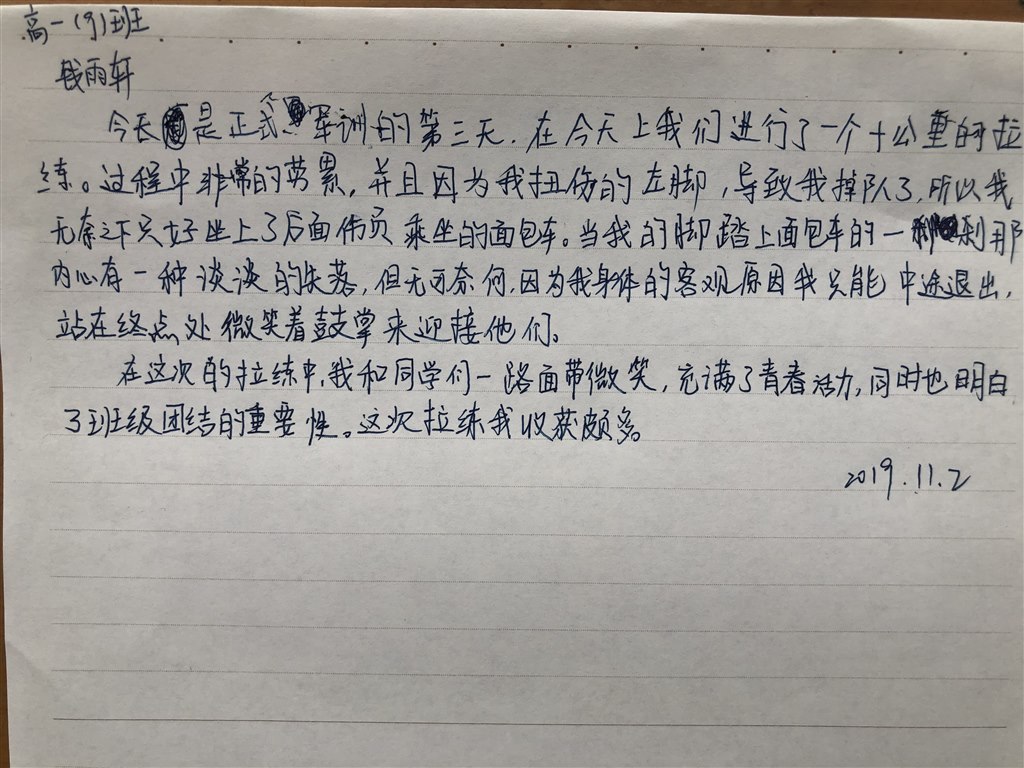 高一(9)班
钱雨轩
今天是正式军训的第三天.在今天上我们进行了一个十公里的拉
练。过程中非常的劳累,并且因为我扭伤的左脚,导致我掉队了,所以我
无奈之下只好坐上了后面伤员乘坐的面包车。当我的脚踏上面包车的一刹那
内心有一种谈谈的失落,但无可奈何,因为我身体的客观原因我只能中途退出,
站在终点处微笑着鼓掌来迎接他们。
在这次的拉练中,我和同学们一路面带微笑,充满了青春活力,同时也明白
了班级团结的重要性。这次拉练我收获颇多。
2019.11.2